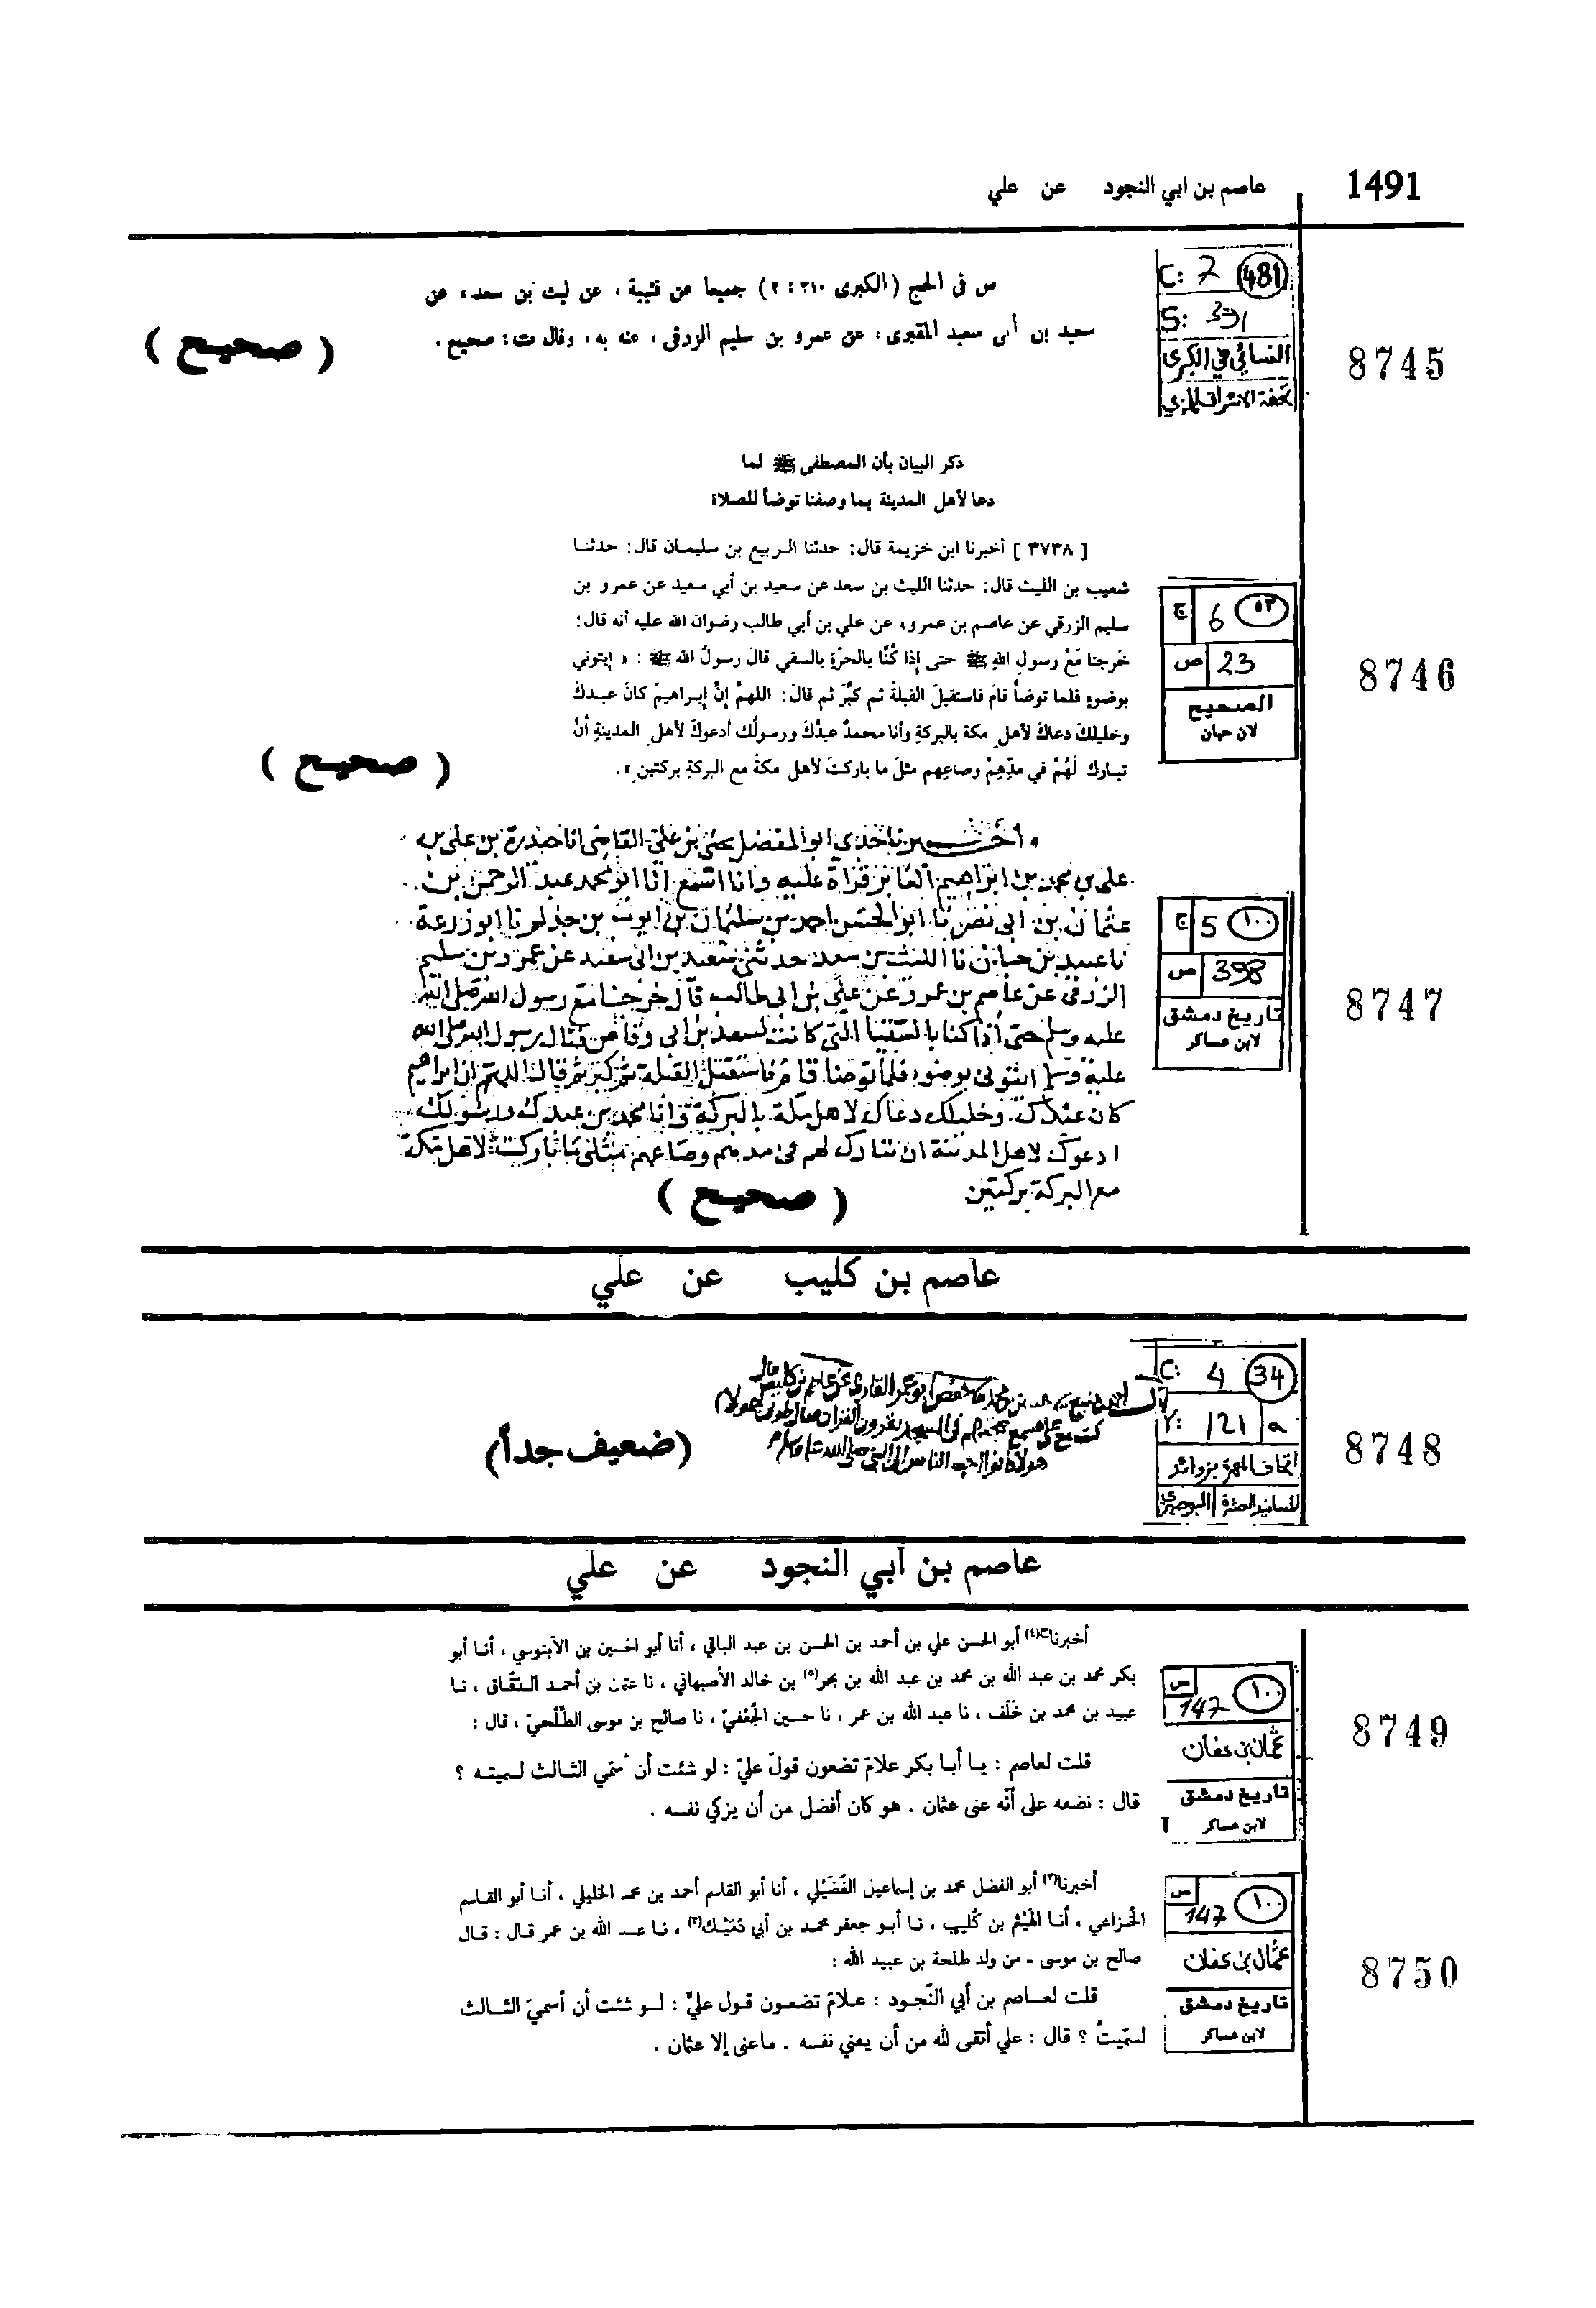 1491
عاصم بن ابي النجود عن علي
س فى الحج (الكبرى ٣١٠ : ٢) جميعا عن قتيبة، عن ليث بن سعد، عن
سعيد بن أبى سعيد المقبرى، عن عمرو بن سليم الزرقى، عنه به، وقال ت: صحيح.
( صحيح )
C: 7 481
S: 391
النسائي في الكبرى
تحفة الاشراف للمزي
8745
ذكر البيان بأن المصطفى ﷺ لما
دعا لأهل المدينة بما وصفنا توضأ للصلاة
[ ٣٧٣٨ ] أخبرنا ابن خزيمة قال: حدثنا الربيع بن سليمان قال: حدثنا
شعيب بن الليث قال: حدثنا الليث بن سعد عن سعيد بن أبي سعيد عن عمرو بن
سليم الزرقي عن عاصم بن عمرو، عن علي بن أبي طالب رضوان الله عليه أنه قال:
خرجنا مَعْ رسولِ اللهِ ﷺ حتى إذا كُنَّا بالحرَّةِ بالسقي قالَ رسولُ الله ﷺ : « إيتوني
بوضوءٍ فلما توضأ قامَ فاستقبلَ القبلةَ ثم كبَّرَ ثم قالَ: اللهمَّ إنَّ إبراهيمَ كانَ عبدكَ
وخليلكَ دعاكَ لأهلِ مكة بالبركةِ وأنا محمدٌ عبدُكَ ورسولُك أدعوكَ لأهلِ المدينةِ أنْ
تباركَ لَهُمْ في مدِّهِمْ وصاعِهم مثلَ ما باركتَ لأهل مكةَ مع البركةِ بركتينِ ».
( صحيح )
ج 6 ٥٣
ص 23
الصحيح
لابن حبان
8746
أخبرنا جدي ابو المفضل يحيى بن علي القاضي انا حيدرة بن علي بن
علي بن محمد بن ابراهيم العابر قراة عليه وانا اسمع انا ابو محمد عبد الرحمن بن
عثمان بن ابي نصر نا ابو الحسن احمد بن سليمان بن ايوب بن حذلم نا ابو زرعة
نا عبيد بن حبان نا الليث بن سعد حدثني سعيد بن ابي سعيد عن عمرو بن سليم
الزرقي عن عاصم بن عمرو عن علي بن ابي طالب قال خرجنا مع رسول الله صلى الله
عليه وسلم حتى اذا كنا بالسقيا التي كانت لسعد بن ابي وقاص فقال رسول الله صلى الله
عليه وسلم ايتوني بوضوء فلما توضا قام فاستقبل القبلة ثم كبر ثم قال اللهم ان ابراهيم
كان عبدك وخليلك دعاك لاهل مكة بالبركة وانا محمد بن عبدك ورسولك
ادعوك لاهل المدينة ان تبارك لهم في مدهم وصاعهم مثلي ما باركت لاهل مكة
مع البركة بركتين
( صحيح )
ج 5 ١٠٠
ص 398
تاريخ دمشق
لابن عساكر
8747
عاصم بن كليب عن علي
حفص ابو عمر القاري عن عاصم بن كليب قال
كنت مع علي فسمع ضجتهم في المسجد يقرءون القران فقال طوبى لهولاء
هولاء كانوا احب الناس الى النبي صلى الله عليه وسلم
(ضعيف جدأ)
C: 4 34
V: 121 a
اتحاف المهرة بزوائد
المسانيد العشرة البوصيري
8748
عاصم بن أبي النجود عن علي
أخبرنا(٤) أبو الحسن علي بن أحمد بن الحسن بن عبد الباقي ، أنا أبو الحسين بن الآبنوسي ، أنا أبو
بكر محمد بن عبد الله بن محمد بن عبد الله بن بحر(٥) بن خالد الأصبهاني ، نا عثمان بن أحمد الدقّاق ، نا
عبيد بن محمد بن خَلَف ، نا عبد الله بن عمر ، نا حسين الجُعْفيّ ، نا صالح بن موسى الطَّلْحيّ ، قال :
قلت لعاصم : يا أبا بكر علامَ تضعون قولَ عليّ : لو شئت أن أسمّي الثالث لسميته ؟
قال : نضعه على أنّه عنى عثمان . هو كان أفضل من أن يزكي نفسه .
ص ١٠٠
147
عثمان بن عفان
تاريخ دمشق
لابن عساكر
8749
أخبرنا(٢) أبو الفضل محمد بن إسماعيل الفُضَيْلي ، أنا أبو القاسم أحمد بن محمد الخليلي ، أنا أبو القاسم
الخُزاعي ، أنا الهَيْثم بن كُليب ، نا أبو جعفر محمد بن أبي دُمَيْك(٣) ، نا عبد الله بن عمر قال : قال
صالح بن موسى - من ولد طلحة بن عبيد الله :
قلت لعاصم بن أبي النّجود : علامَ تضعون قول عليّ : لو شئت أن أسميَ الثالث
لسمّيتُ ؟ قال : علي أتقى لله من أن يعني نفسه . ماعنى إلا عثمان .
ص ١٠٠
147
عثمان بن عفان
تاريخ دمشق
لابن عساكر
8750